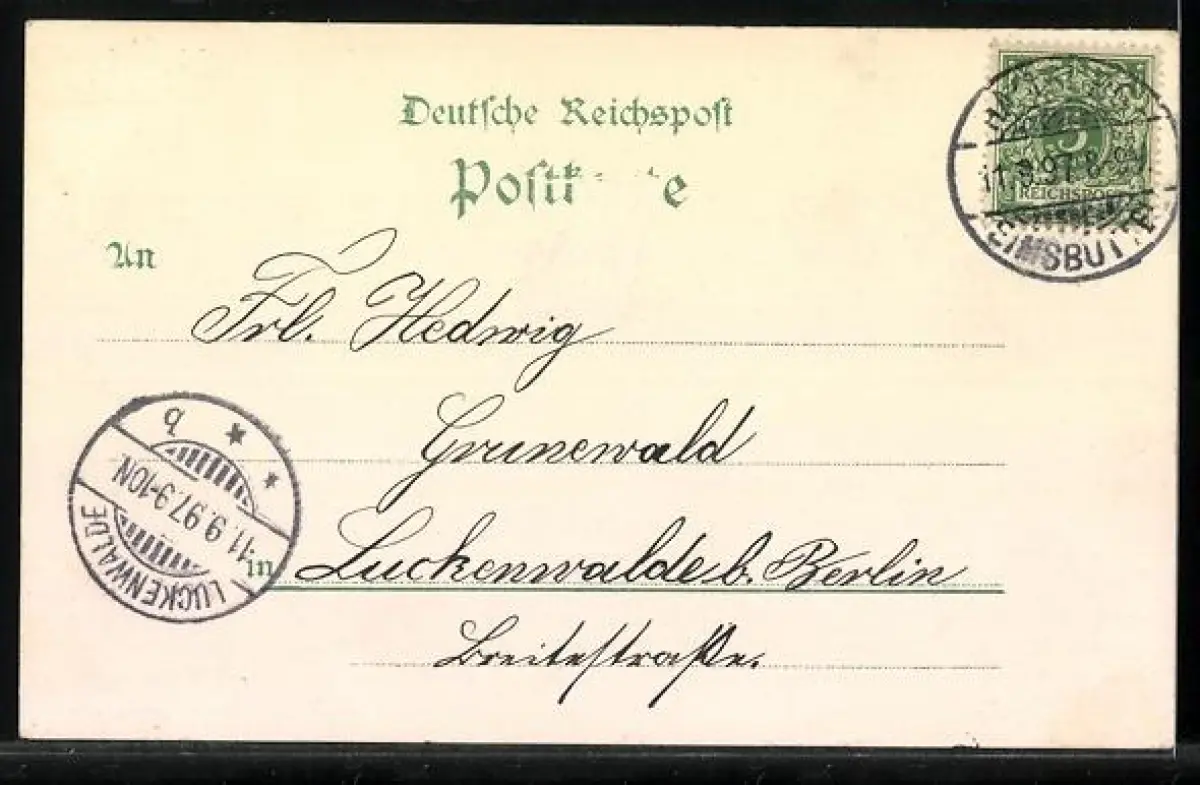 Deutsche Reichspost
5
REICHSPOST
11.9.97.8-9V.
An
Frl. Hedwig
Grunewald
in Luckenwalde b. Berlin
Breitestraße.
LUCKENWALDE
11.9.97.9-10N
b